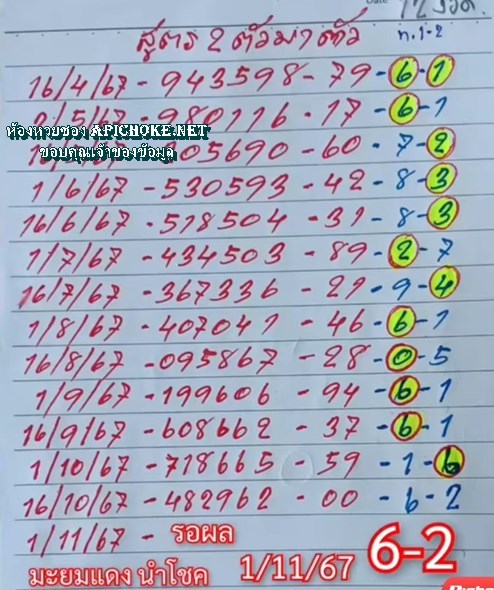 12 งวด.
สูตร 2 ตัวมา 1 ตัว ท.1-2
16/4/67 - 943598 - 79 - 6 - 1
/5/67 - 980116 - 17 - 6 - 1
ห้องหวยซอง APICHOKE.NET
05690 - 60 - 7 - 2
ขอบคุณเจ้าของข้อมูล
1/6/67 - 530593 - 42 - 8 - 3
16/6/67 - 518504 - 31 - 8 - 3
1/7/67 - 434503 - 89 - 2 - 7
16/7/67 - 367336 - 21 - 9 - 4
1/8/67 - 407041 - 46 - 6 - 1
16/8/67 - 095867 - 28 - 0 - 5
1/9/67 - 199606 - 94 - 6 - 1
16/9/67 - 608662 - 37 - 6 - 1
1/10/67 - 718665 - 59 - 1 - 6
16/10/67 - 482962 - 00 - 6 - 2
1/11/67 - รอผล
มะยมแดง นำโชค 1/11/67 6-2